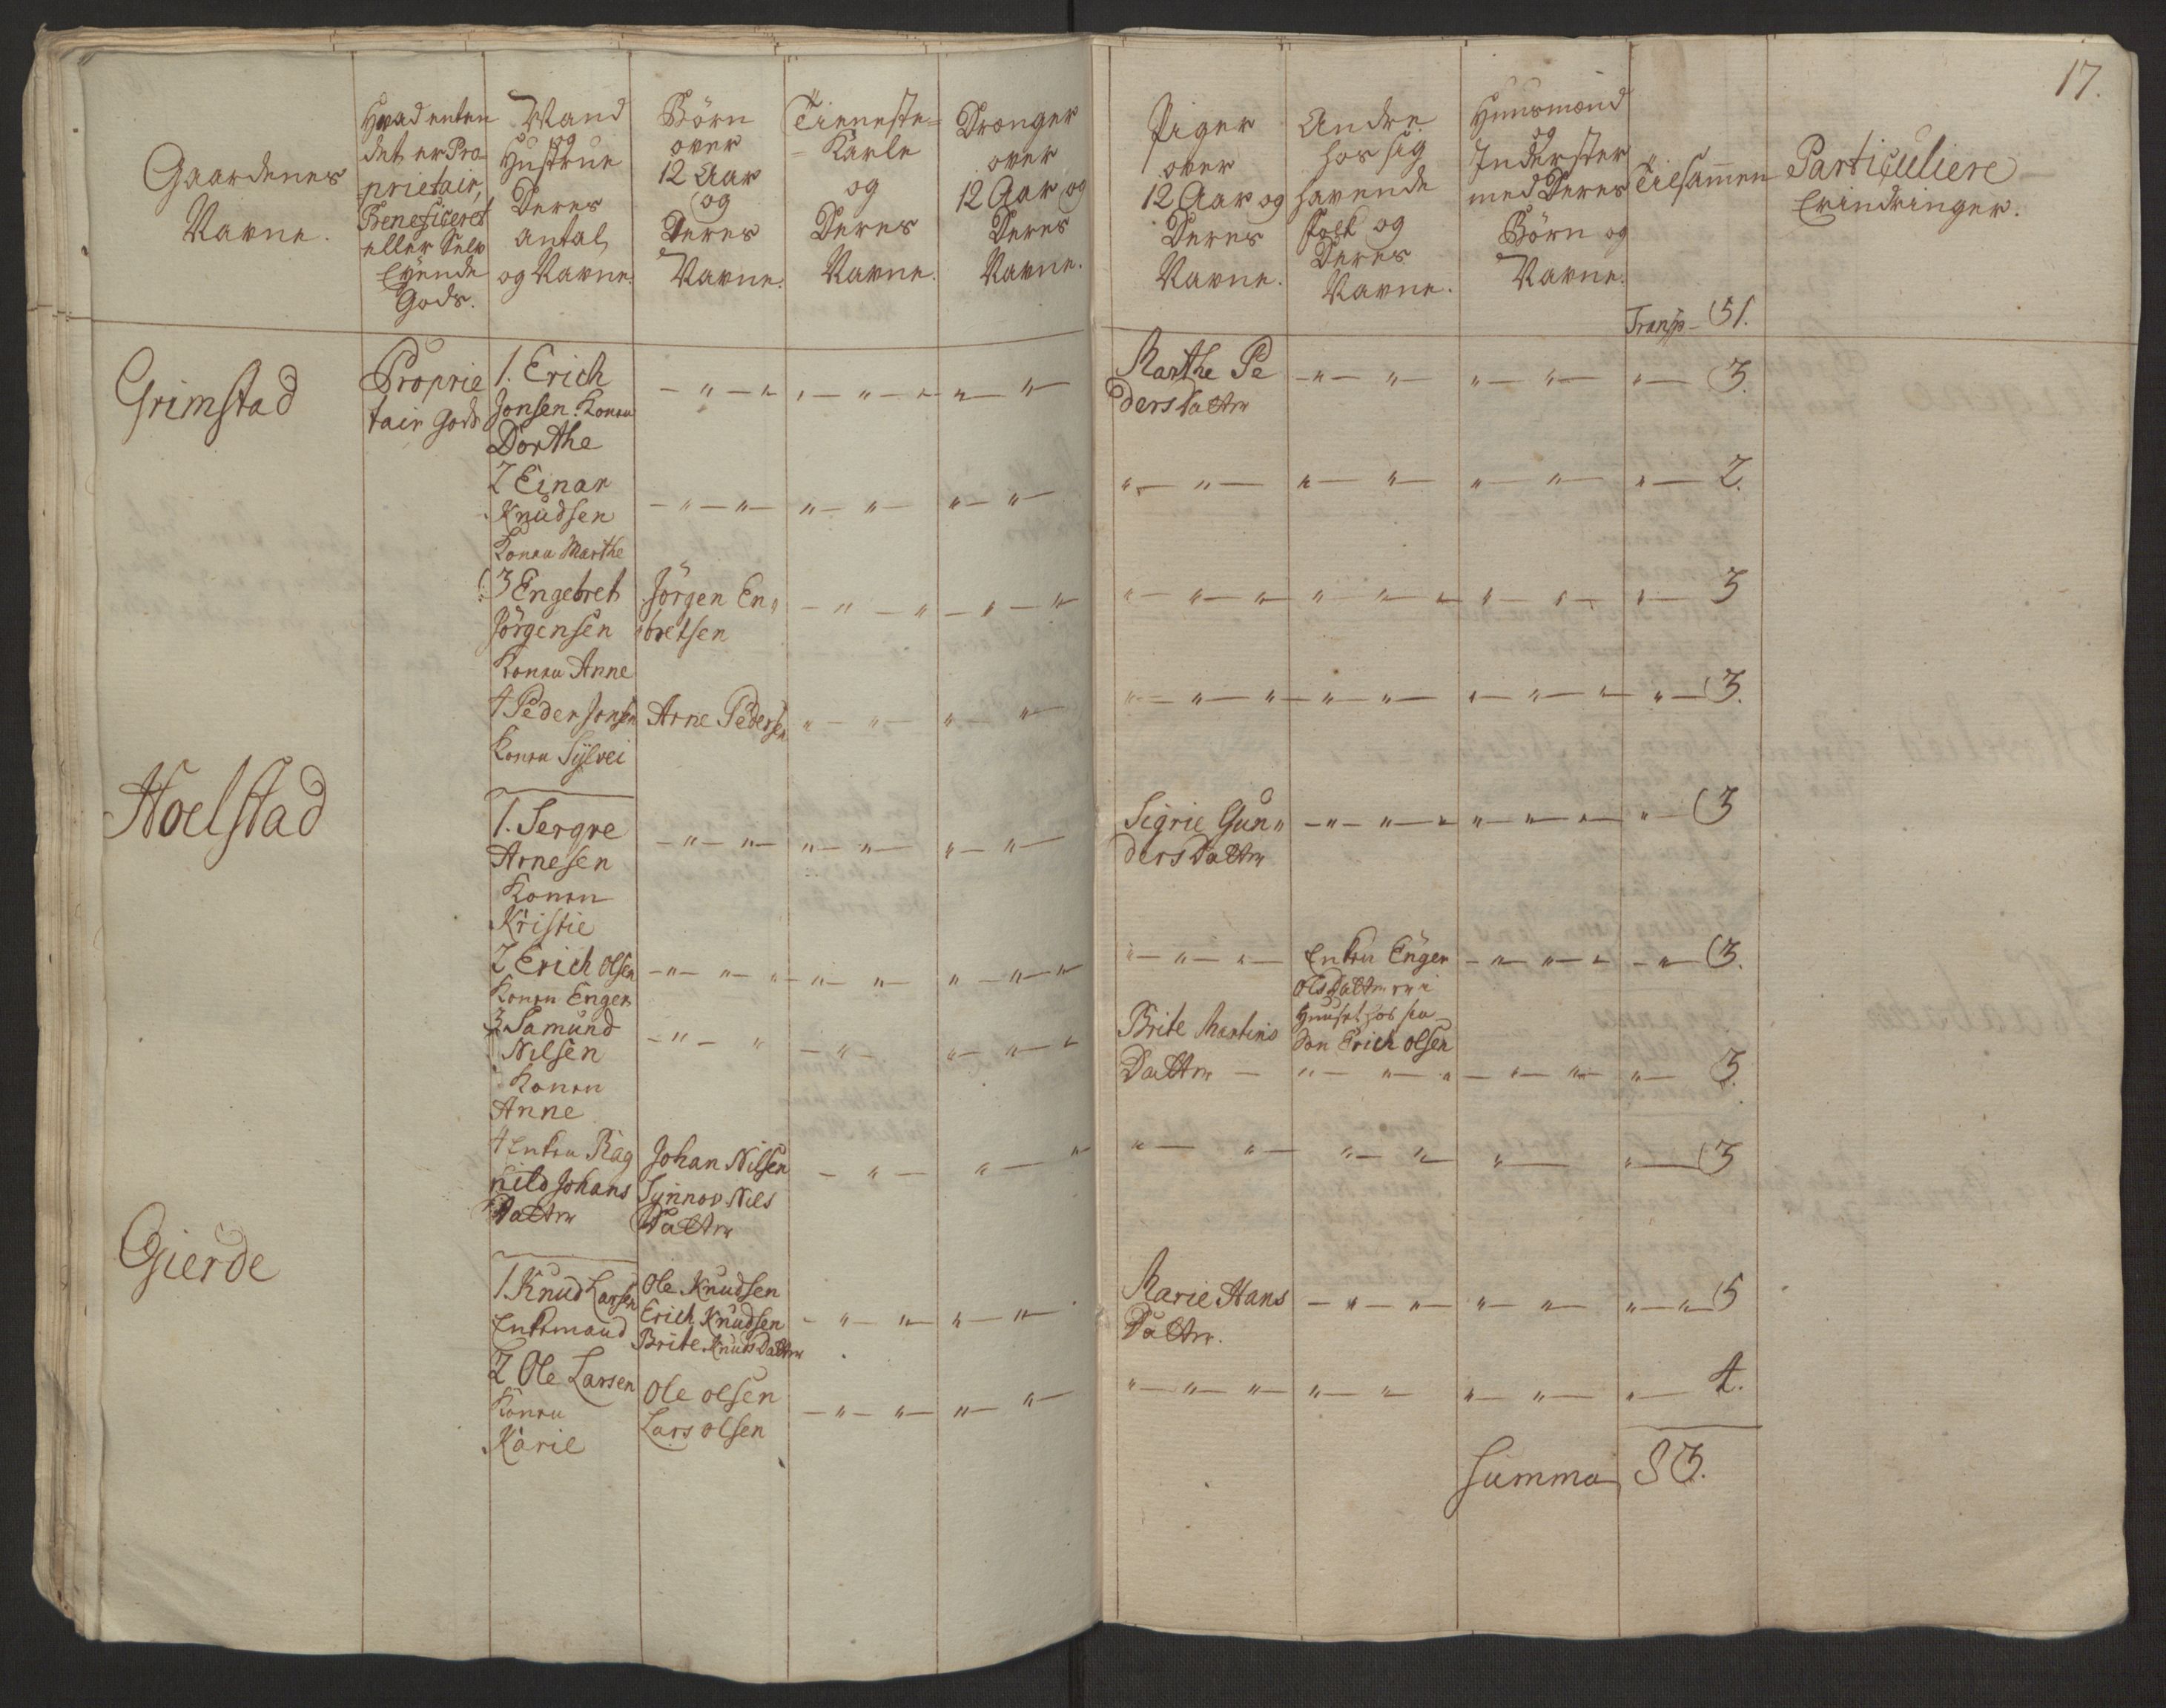 17.
Gaardenes
Navne.
Hvad enten
det er Pro
prietair,
Beneficeret
eller Selv
Eÿende
Gods.
Mand
og
Hustrue
Deres
antal
og Navne.
Börn
over
12 Aar
og
Deres
Navne.
Tieneste=
Karle
og
Deres
Navne.
Drenger
over
12 Aar og
Deres
Navne.
Piger
over
12 Aar og
Deres
Navne.
Andre
hos sig
havende
Folk og
Deres
Navne.
Huusmænd
og
Inderster
med Deres
Börn og
Navne.
Tilsamen
Particuliere
Erindringer.
Transp- 51.
Grimstad
Proprie
tair Gods
1. Erich
Jonsen. Konen
Dorthe
Marthe Pe
dersDatter
3.
2 Einar
Knudsen
Konen Marthe
2.
3 Engebret
Jörgensen
Konen Anne
Jörgen En„
bretsen
3
4 Peder Jonsen
Konen Sÿlvei
Arne Pedersen
3.
Hoelstad
1. Sergve
Arnesen
Konen
Kristie
Sigrie Gun„
dersDatter
3
2 Erich Olsen
Konen Enger
Enken Enger
OlsDatter er i
Huuset hos sin
Son Erich Olsen
3.
3 Samund
Nilsen
Konen
Anne
Brite Martins
Datter
3.
4 Enken Rag
nild Johans
Datter
Johan Nilsen
Synnov Nils
Datter
3
Gierde
1. Knud Larsen
Enkemand
Ole Knudsen
Erich Knudsen
Brite KnudsDatter
Marie Hans
Datter.
5
2 Ole Larsen
Konen
Karie
Ole Olsen
Lars Olsen
4.
Summa 83.